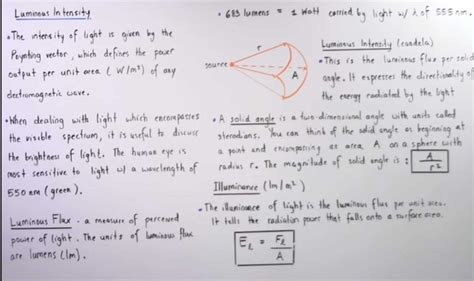 Luminous Intensity
• The intensity of light is given by the
Poynting vector, which defines the power
output per unit area (W/m²) of any
electromagnetic wave.
• When dealing with light which encompasses
the visible spectrum, it is useful to discuss
the brightness of light. The human eye is
most sensitive to light w/ a wavelength of
550 nm (green).
Luminous Flux - a measure of perceived
power of light. The units of luminous flux
are lumens (lm).
• 683 lumens = 1 Watt carried by light w/ λ of 555 nm.
source
r
A
Luminous Intensity (candela)
• This is the luminous flux per solid
angle. It expresses the directionality of
the energy radiated by the light
• A solid angle is a two-dimensional angle with units called
steradians. You can think of the solid angle as beginning at
a point and encompassing an area A on a sphere with
radius r. The magnitude of solid angle is : A
r²
Illuminance (lm/m²)
• The illuminance of light is the luminous flux per unit area.
It tells the radiation power that falls onto a surface area.
E_ℓ = F_ℓ
A